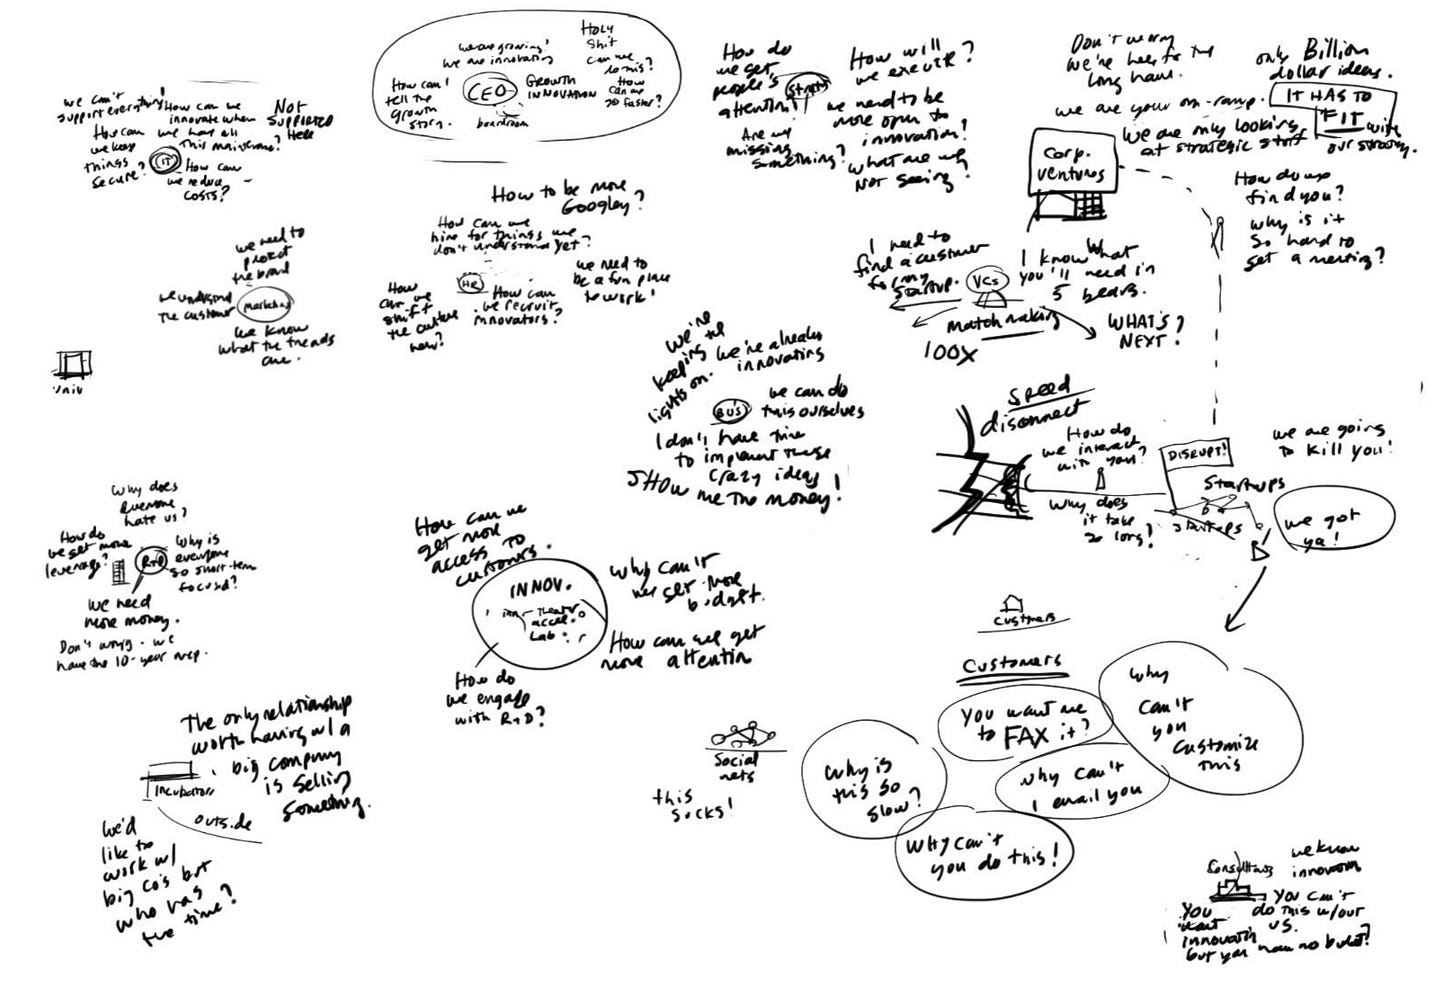 we can't
support everything!
How can we
keep
things
secure?
How can we
innovate when
we have all
this mainframe?
NOT
SUPPORTED
Here
IT
How can
we reduce
costs?
we are growing!
we are innovating
HOLY
Shit
can we
do this?
How can I
tell the
growth
story.
CEO
GROWTH
INNOVATION
How
can we
go faster?
boardroom
How do
we get
people's
attention!
Strats
Are we
missing
something?
How will
we execute?
we need to be
more open to
innovation!
what are we
NOT seeing?
Don't worry
We're here for the
long haul.
we are your on-ramp.
We are only looking
at strategic stuff
only Billion
dollar ideas.
IT HAS TO
FIT with
our strategy.
Corp.
Ventures
How do we
find you?
why is it
so hard to
get a meeting?
we need to
protect
the brand
we understand
the customer
marketing
we know
what the trends
are.
How to be more
Googley?
How can we
hire for things we
don't understand yet?
HR
How
can we
shift
the culture
here?
How can
we recruit
innovators?
we need to
be a fun place
to work!
I need to
find a customer
for my
startup.
VCs
I know what
you'll need in
5 years.
matchmaking
100X
WHAT'S
NEXT?
Univ
We're
keeping the
lights on.
we're already
innovating
BU's
we can do
this ourselves
I don't have time
to implement these
crazy ideas!
SHOW me the money!
speed
disconnect
How do
we interact
with you?
Why does
it take
so long?
DISRUPT!
Startups
startups
we are going
to kill you!
we got
ya!
Why does
everyone
hate us?
How do
we get more
leverage?
R+D
Why is
everyone
so short-term
focused?
we need
more money.
Don't worry. we
have the 10-year map.
How can we
get more
access to
customers.
INNOV.
theater
accel.
Lab
Why can't
we get more
budget.
How can we get
more attention
How do
we engage
with R+D?
customers
Customers
You want me
to FAX it?
Why
can't
you
customize
this
Why is
this so
slow?
why can't
I email you
WHY can't
you do this!
Social
nets
this
sucks!
The only relationship
worth having w/ a
big company
is selling
something.
Incubators
outside
We'd
like to
work w/
big co's but
who has
the time?
Consultants
we know
innovation
You can't
do this w/out
us.
You
want
innovation
but you have no budget?